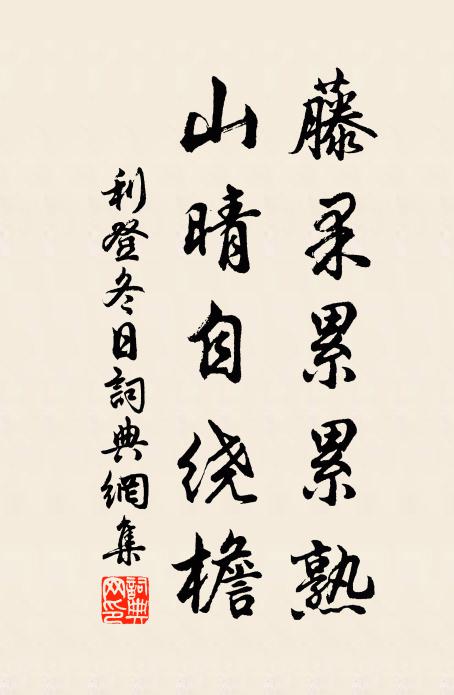 藤果累累熟
山晴自绕檐
利登冬日詞典網集
詞典网印